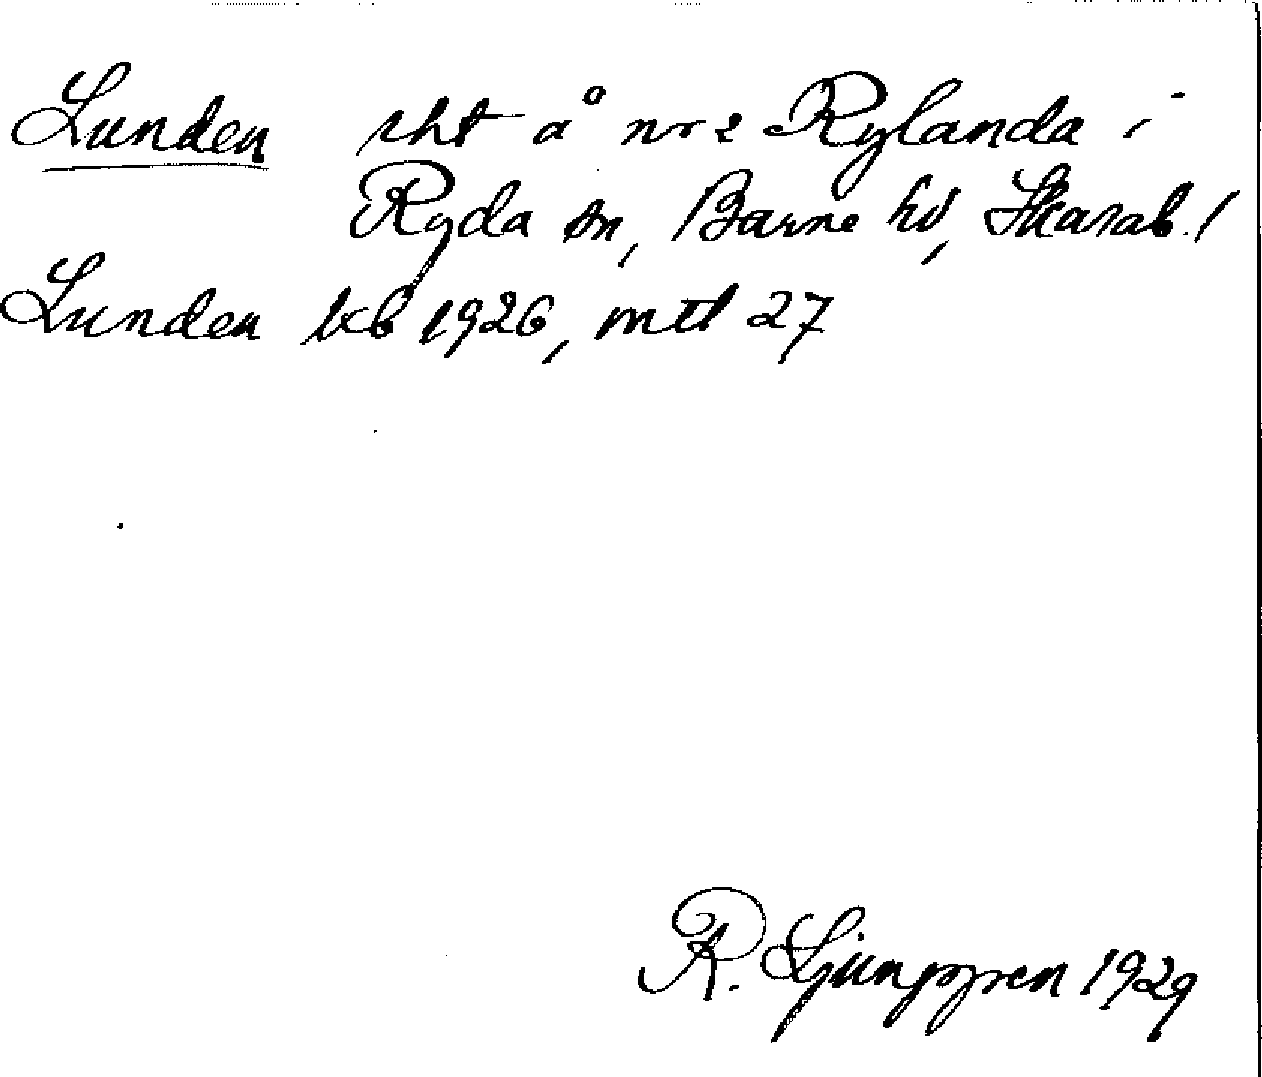 Lunden rht å nr 2 Rylanda i
Ryda sn, Barne hd, Skarab. l
Lunden kb 1926, mtl 27
R. Ljunggren 1929